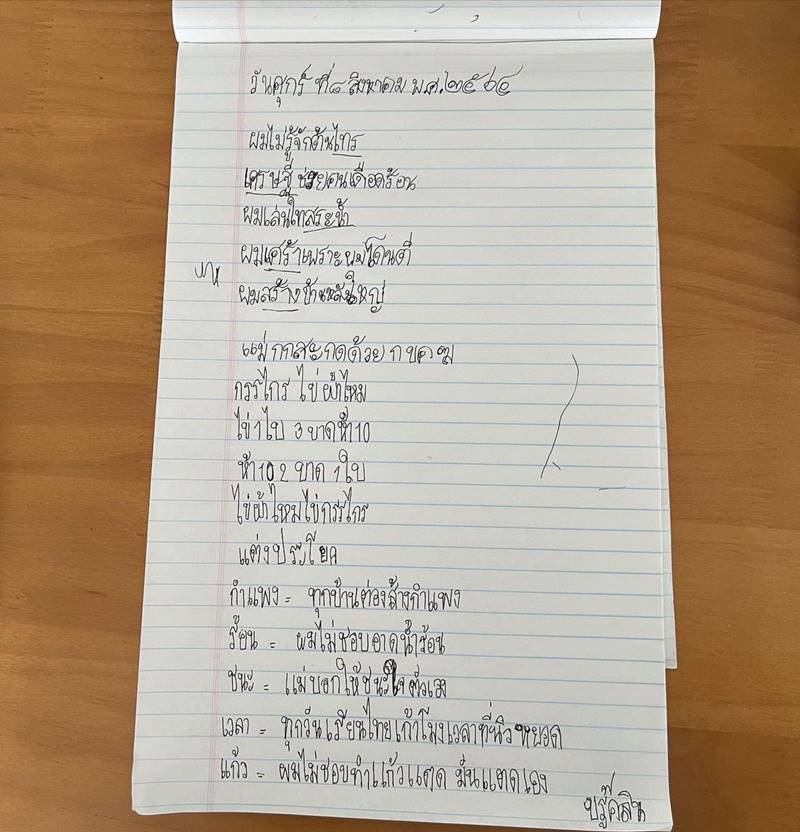 วันศุกร์ ที่๘ สิงหาคม พ.ศ.๒๕๖๔
ผมไม่รู้จักต้นไทร
เศรษฐีช่วยคนเดือดร้อน
ผมเล่นใทสระน้ำ
ผมเศร้าเพราะผมโดนตี
ผมสร้างบ้านหลังใหญ่
แม่ กกสะกดด้วย ก ข ค ฆ
กรรไกร ไข่ ผ้าไหม
ไข่ 1 ใบ 3 บาดห้า 10
ห้า 10 2 บาด 1 ใบ
ไข่ผ้าไหมไข่กรรไกร
แต่งประโยค
กำแพง = ทุกบ้านต้องล้างกำแพง
ร้อน = ผมไม่ชอบอาดน้ำร้อน
ชนะ = แม่บอกให้ชนะใจตัวเอง
เวลา = ทุกวันเรียนไทยเก้าโมงเวลาที่นิวหยอด
แก้ว = ผมไม่ชอบทำแก้วแตด มันแตดเอง